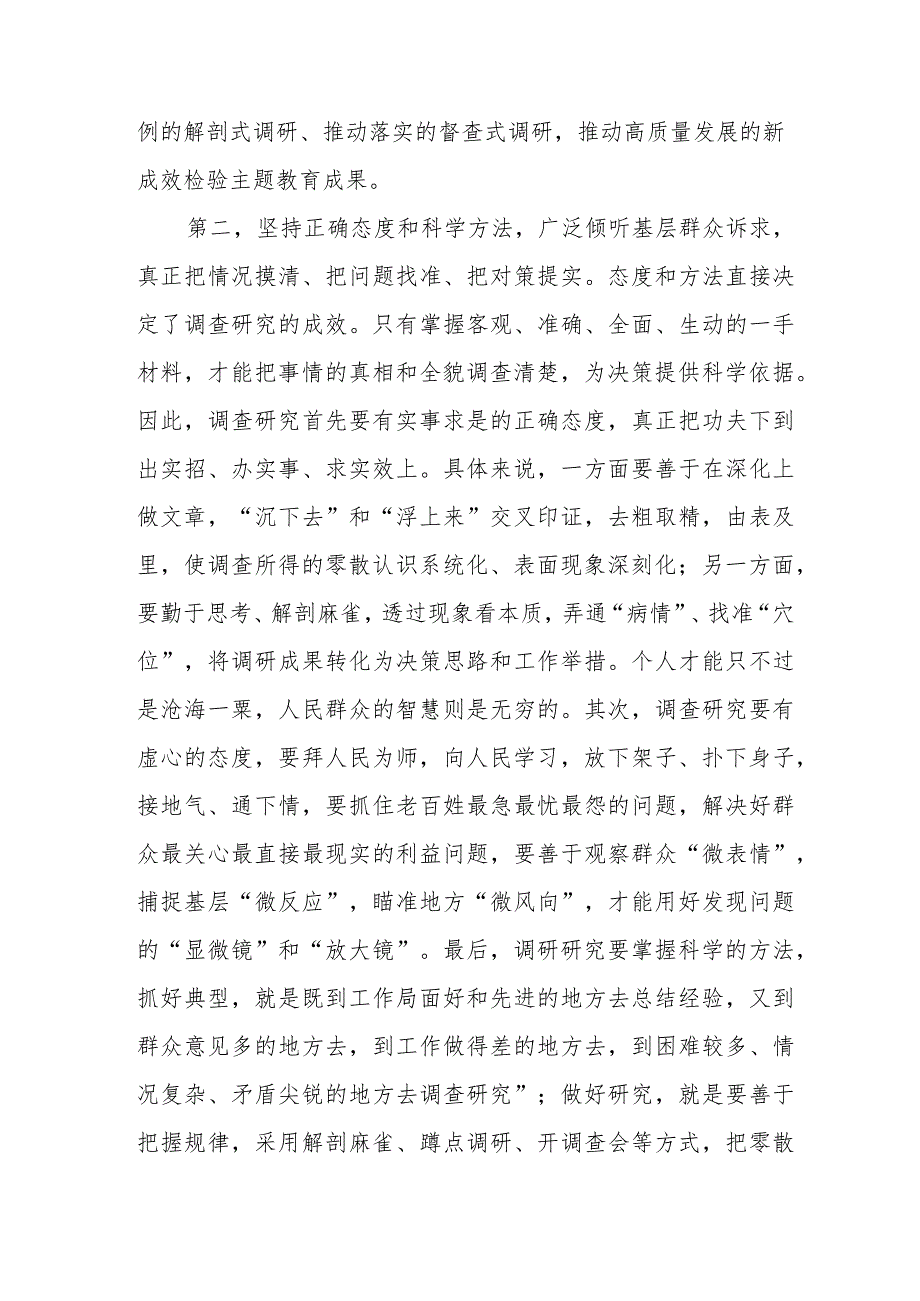 例的解剖式调研、推动落实的督查式调研，推动高质量发展的新
成效检验主题教育成果。
第二，坚持正确态度和科学方法，广泛倾听基层群众诉求，
真正把情况摸清、把问题找准、把对策提实。态度和方法直接决
定了调查研究的成效。只有掌握客观、准确、全面、生动的一手
材料，才能把事情的真相和全貌调查清楚，为决策提供科学依据。
因此，调查研究首先要有实事求是的正确态度，真正把功夫下到
出实招、办实事、求实效上。具体来说，一方面要善于在深化上
做文章，“沉下去”和“浮上来”交叉印证，去粗取精，由表及
里，使调查所得的零散认识系统化、表面现象深刻化；另一方面，
要勤于思考、解剖麻雀，透过现象看本质，弄通“病情”、找准“穴
位”，将调研成果转化为决策思路和工作举措。个人才能只不过
是沧海一粟，人民群众的智慧则是无穷的。其次，调查研究要有
虚心的态度，要拜人民为师，向人民学习，放下架子、扑下身子，
接地气、通下情，要抓住老百姓最急最忧最怨的问题，解决好群
众最关心最直接最现实的利益问题，要善于观察群众“微表情”，
捕捉基层“微反应”，瞄准地方“微风向”，才能用好发现问题
的“显微镜”和“放大镜”。最后，调研研究要掌握科学的方法，
抓好典型，就是既到工作局面好和先进的地方去总结经验，又到
群众意见多的地方去，到工作做得差的地方去，到困难较多、情
况复杂、矛盾尖锐的地方去调查研究”；做好研究，就是要善于
把握规律，采用解剖麻雀、蹲点调研、开调查会等方式，把零散